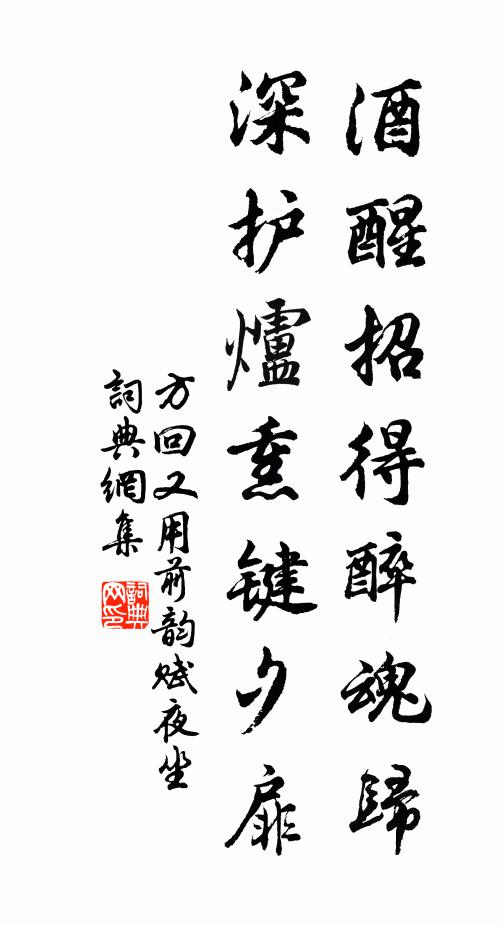 酒醒招得醉魂歸
深护爐熏鍵夕扉
方回又用前韵賦夜坐
詞典網集
詞典网印